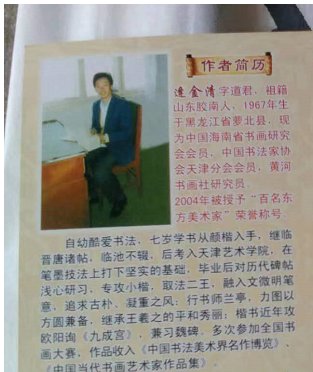 作者简历
逄金清字道君，祖籍
山东胶南人，1967年生
于黑龙江省萝北县，现
为中国海南省书画研究
会会员，中国书法家协
会天津分会会员，黄河
书画社研究员。
2004年被授予“百名东
方美术家”荣誉称号。
自幼酷爱书法，七岁学书从颜楷入手，继临
晋唐诸帖，临池不辍，后考入天津艺术学院，在
笔墨技法上打下坚实的基础，毕业后对历代碑帖
浅心研习，专攻小楷，取法二王，融入文微明笔
意，追求古朴、凝重之风；行书师兰亭，力图以
方圆兼备，继承王羲之的平和秀丽；楷书近年攻
欧阳询《九成宫》，兼习魏碑。多次参加全国书
画大赛，作品收入《中国书法美术界名作博览》、
《中国当代书画艺术家作品集》。